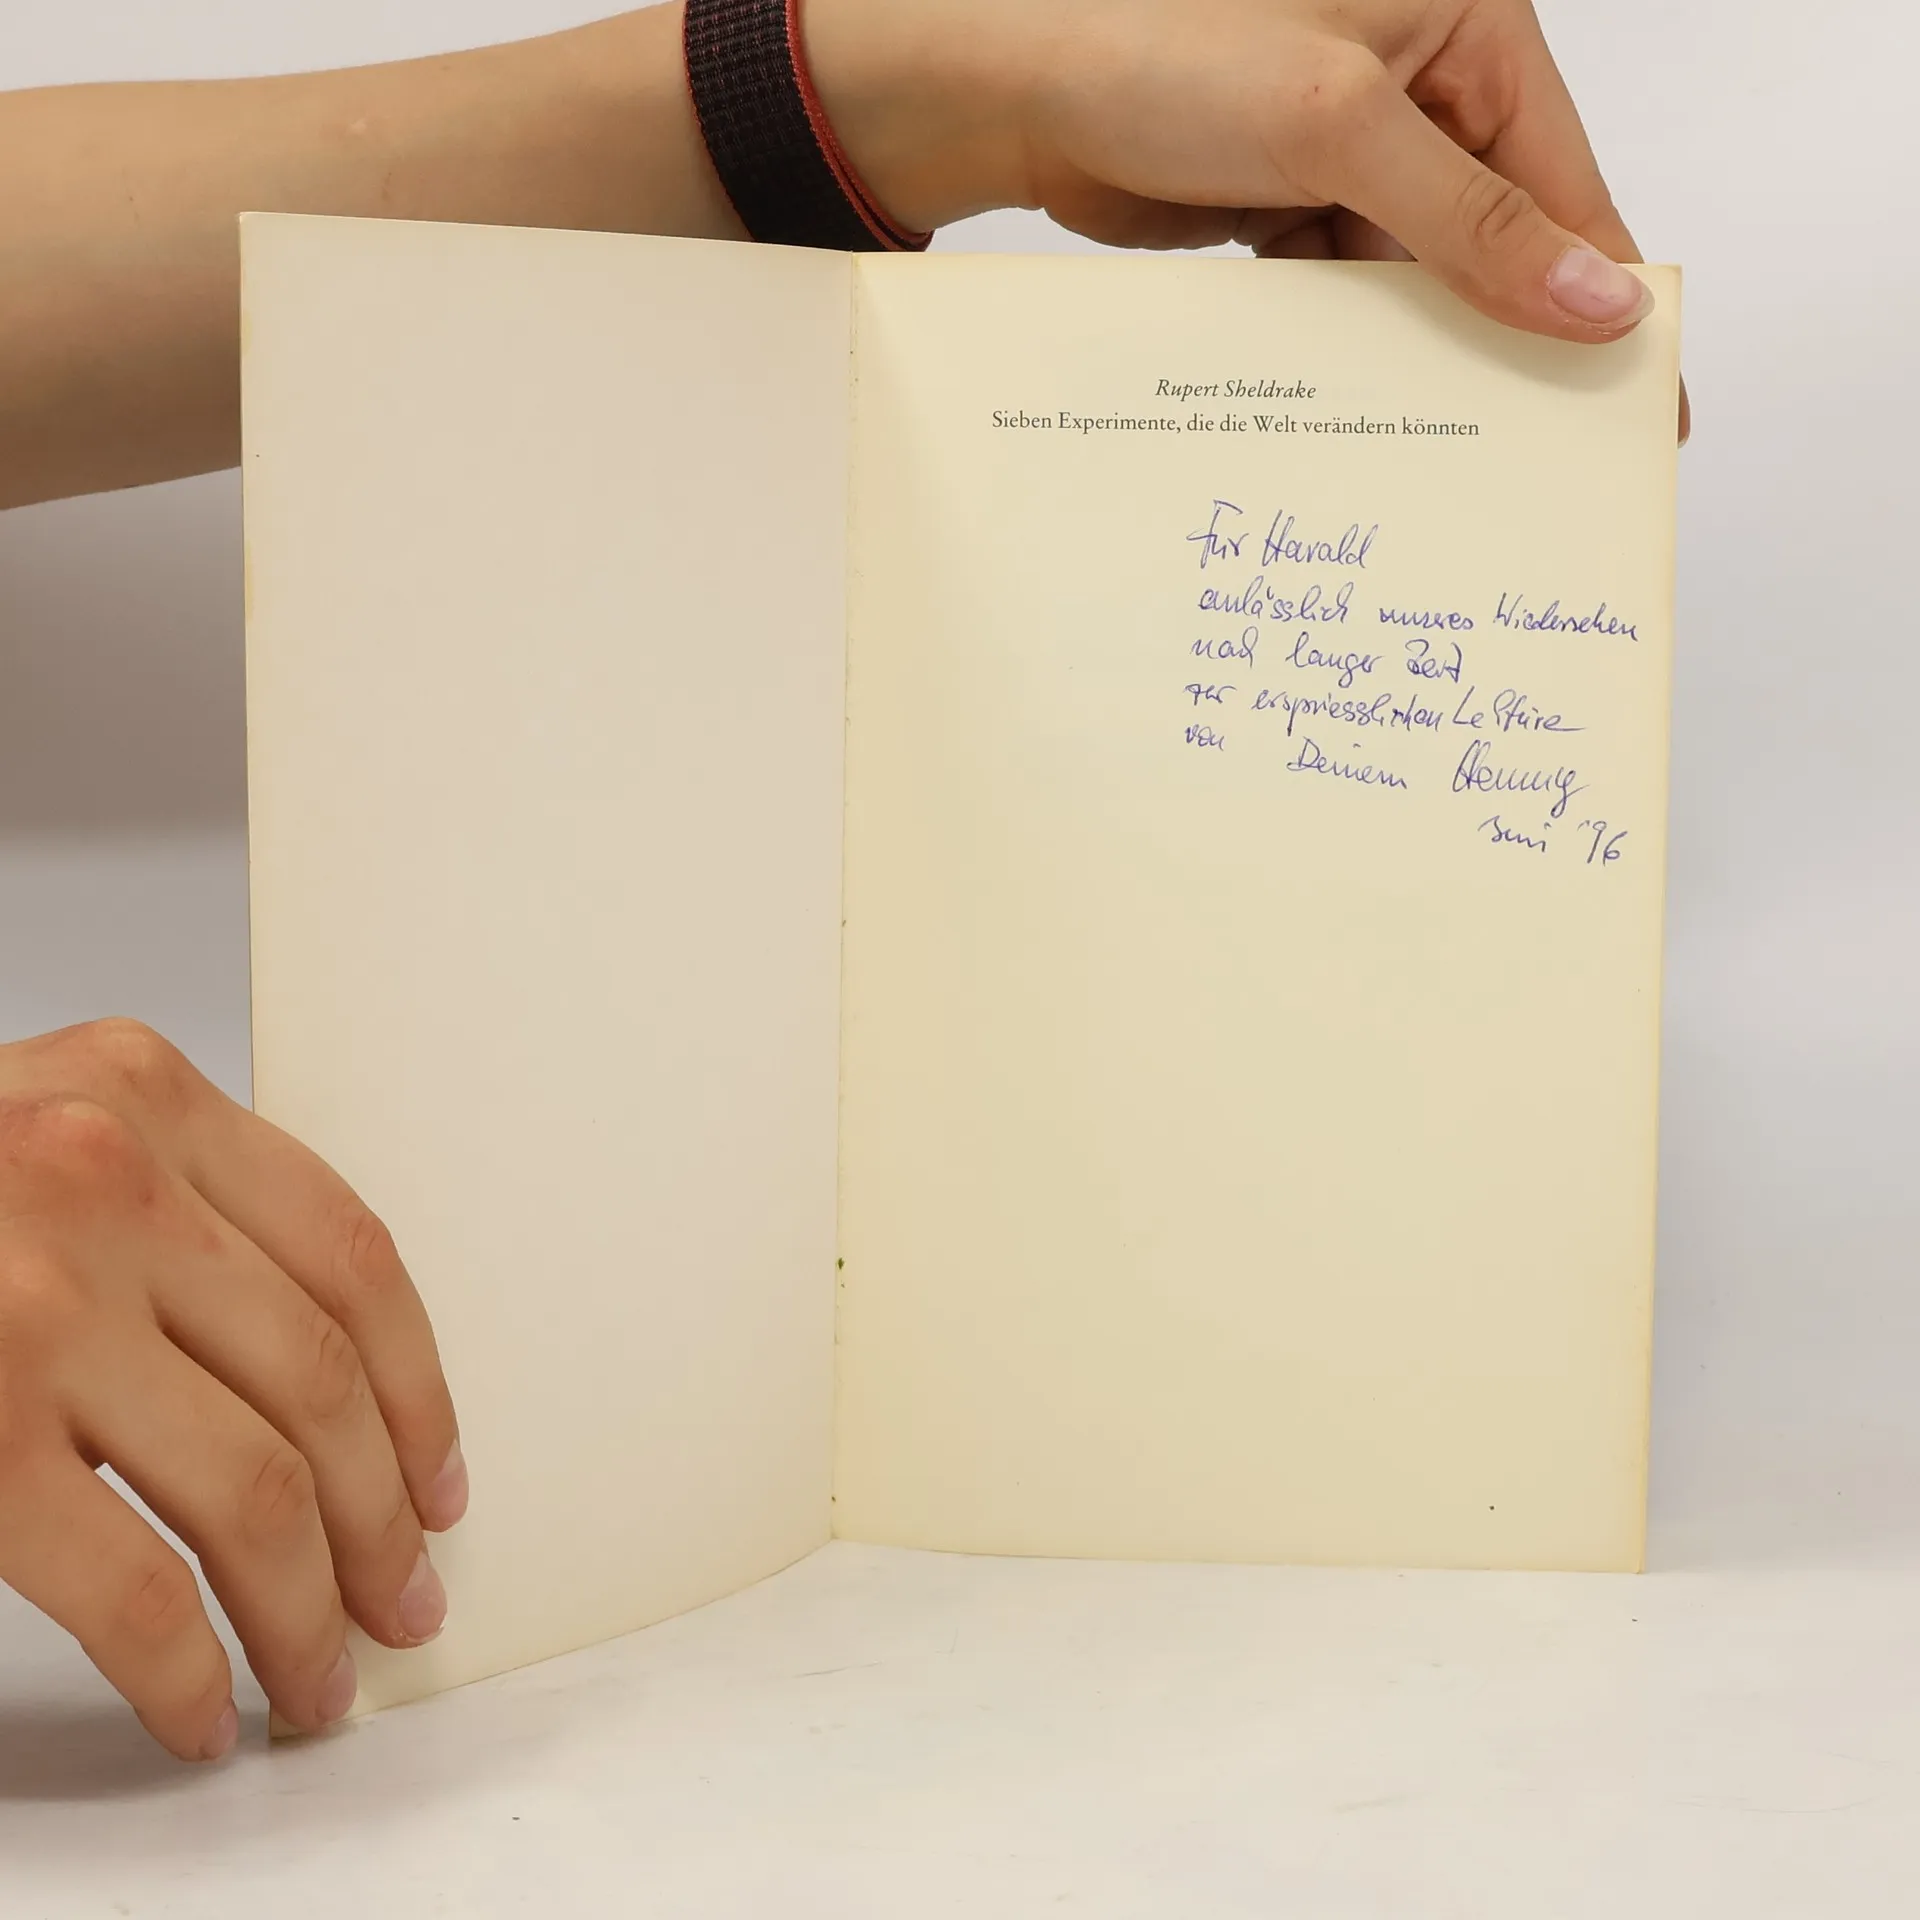 Rupert Sheldrake
Sieben Experimente, die die Welt verändern könnten
Für Harald
anlässlich unseres Wiedersehen
nach langer Zeit
zur erspriesslichen Lektüre
von Deinem Henning
Juni '96